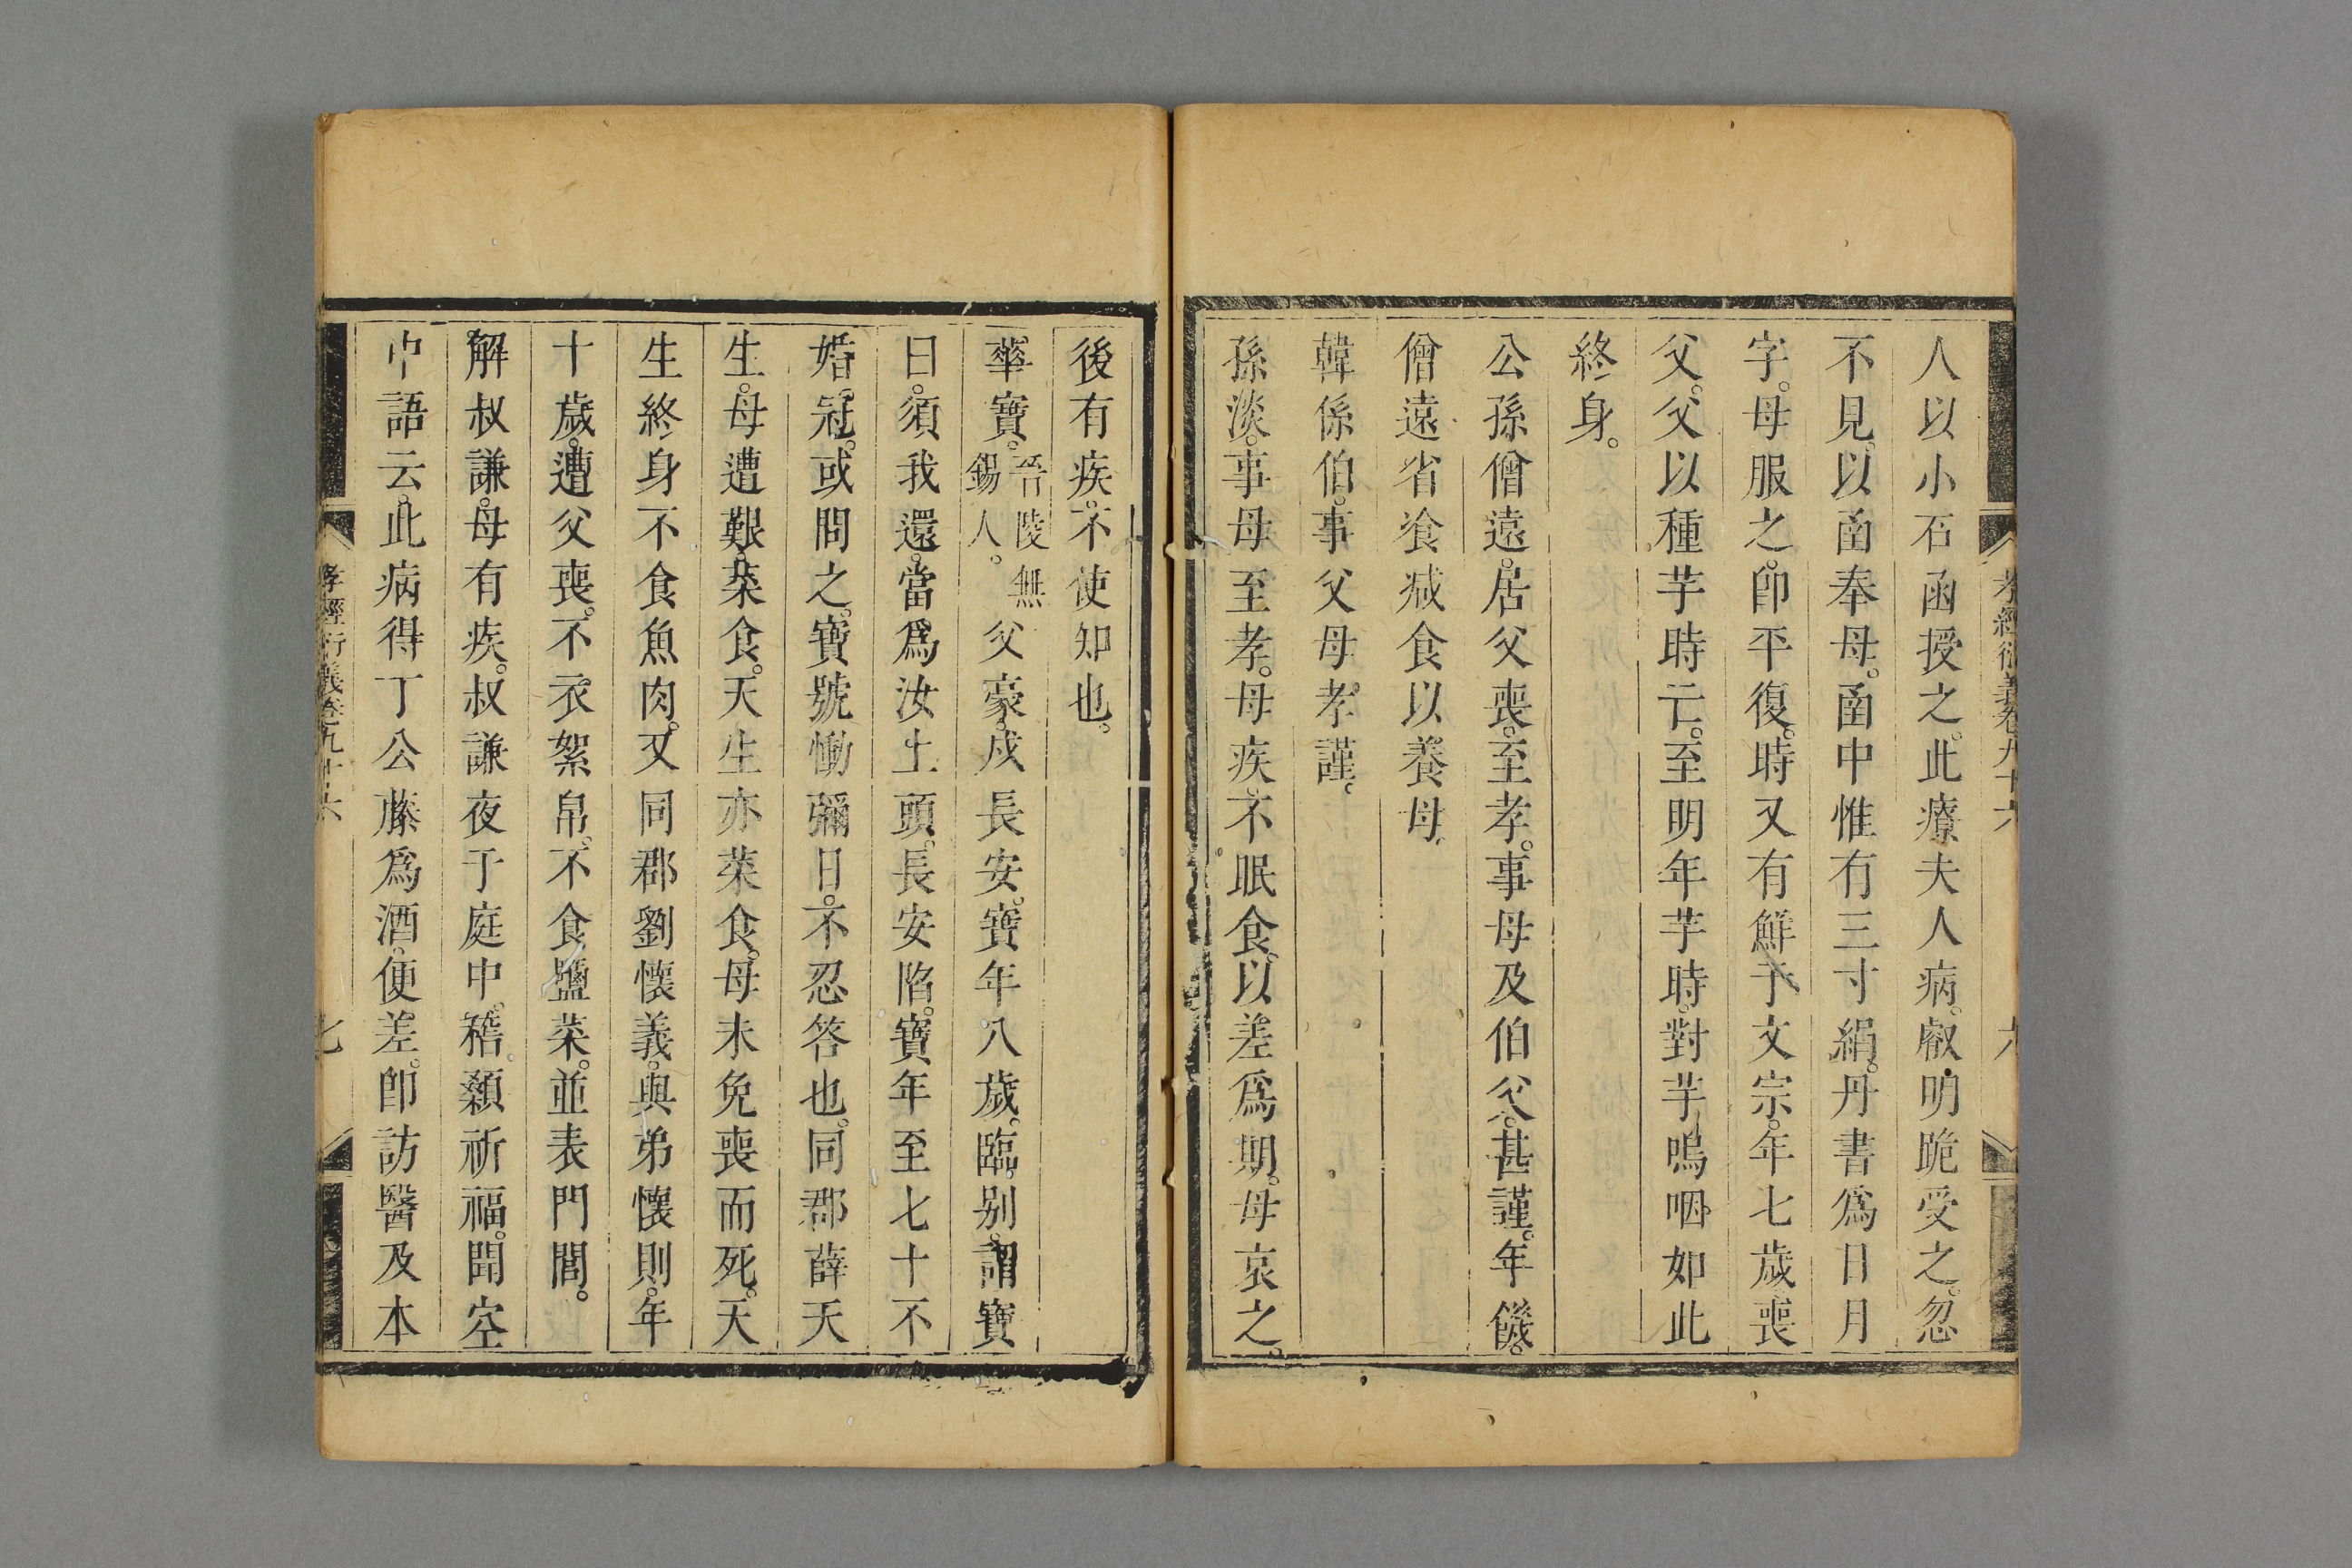 孝經衍義卷九十六
六
人以小石函授之。此療夫人病。叡明跪受之。忽
不見。以函奉母。函中惟有三寸絹。丹書爲日月
字。母服之。卽平復。時又有鮮于文宗。年七歲喪
父。父以種芋時亡。至明年芋時。對芋嗚咽如此
終身。
公孫僧遠。居父喪。至孝。事母及伯父。甚謹。年饑。
僧遠省飡减食以養母
韓係伯。事父母孝謹。
孫淡。事母至孝。母疾。不眠食。以差爲期。母哀之。
後有疾。不使知也。
華寶。晉陵無錫人。父豪。戍長安。寶年八歲。臨。別。謂寶
曰。須我還。當爲汝上頭。長安陷。寶年至七十不
婚。冠。或問之。寶號慟彌日。不忍答也。同郡薛天
生。母遭艱。菜食。天生亦菜食。母未免喪而死。天
生終身不食魚肉。又同郡劉懷義。與弟懷則。年
十歲。遭父喪。不衣絮帛。不食鹽菜。並表門閭。
解叔謙。母有疾。叔謙夜于庭中。稽顙祈福。聞空
中語云。此病得丁公藤爲酒。便差。卽訪醫及本
孝經衍義卷九十六
七